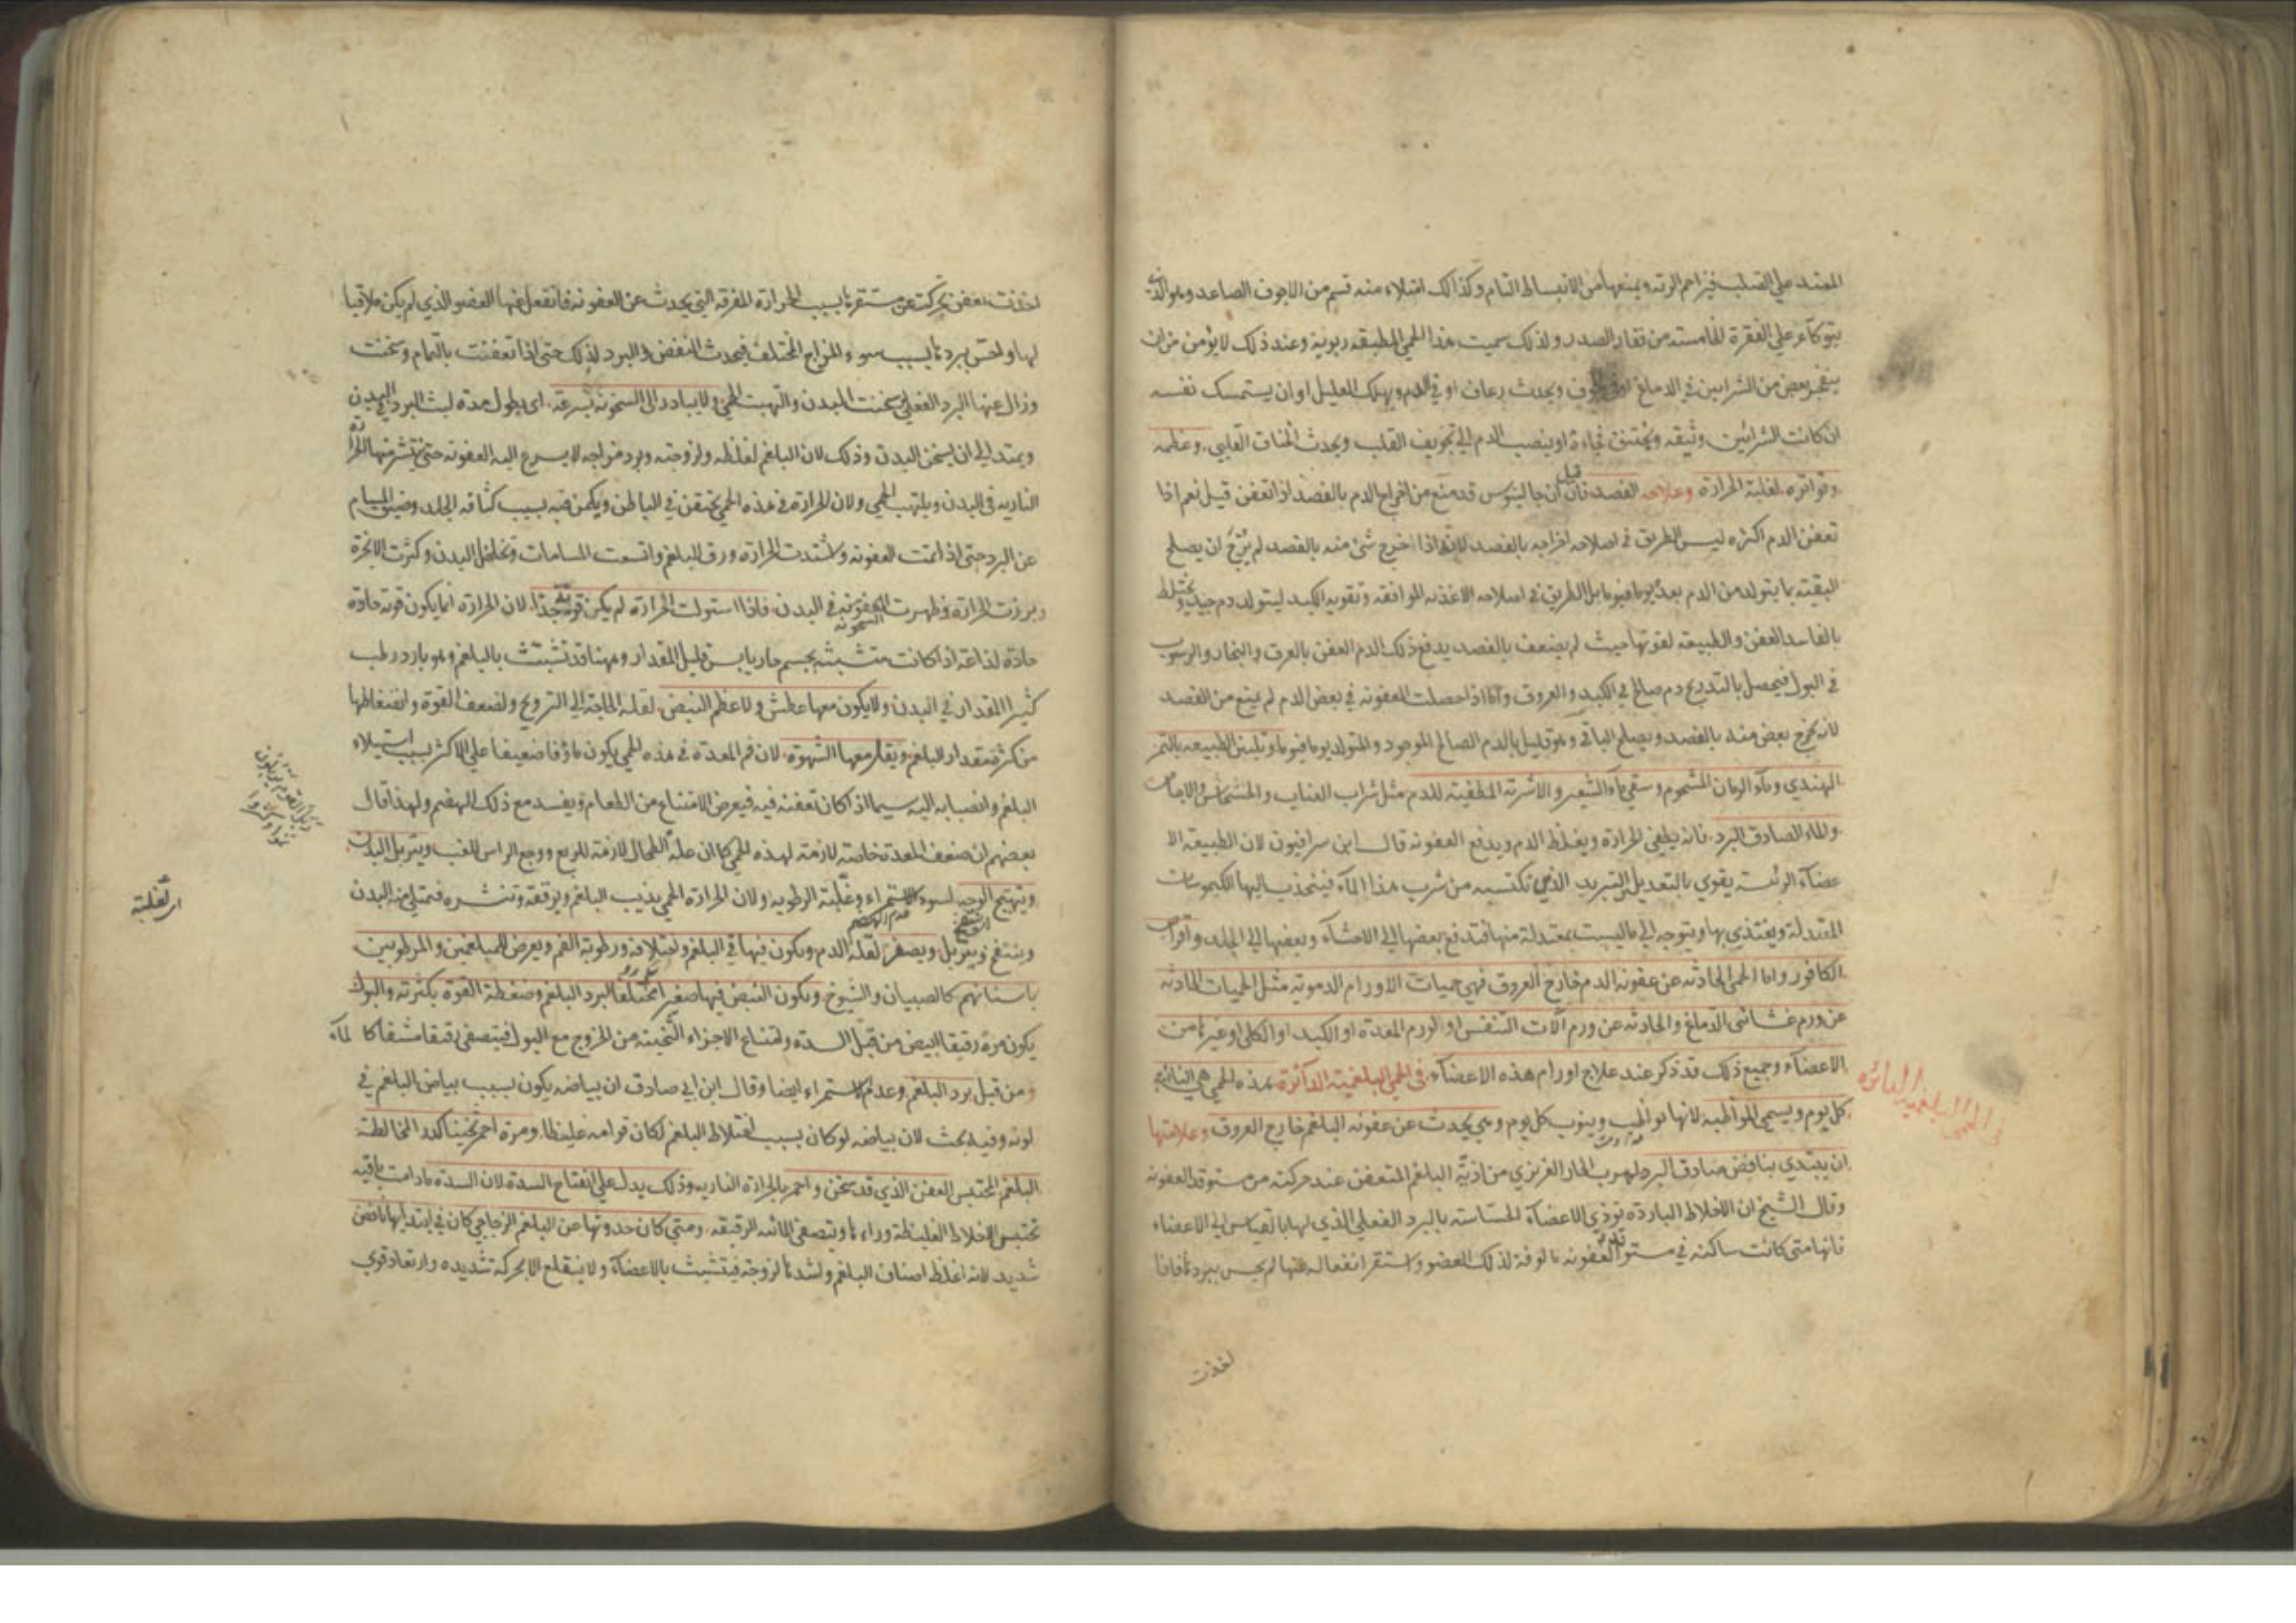 الممتد علي الصلب فيزاحم الرئه ويمنعها من الانبساط التام وكذلك امتلاء منه قسم من الاجوف الصاعد وهو الذي
يتوكاء علي الفقرة الخامسته من فقار الصدر ولذلك سميت هذا الحمي المطبقه ربوية وعند ذلك لا يؤمن من ان
ينفجر بعض من الشرايين في الدماغ او في الجوف ويحدث رعاف او في الدم ويهلك العليل او ان يستمسك نفسه
ان كانت الشرائين وثيقه ويختنق فجاءة او ينصب الدم الي تجويف القلب ويحدث الخناق القلبي وعظمه
وتواتره لغلبة الحرارة وعلاجه الفصد فان قيل ان جالينوس قد منع من اخراج الدم بالفصد اذا تعفن قيل نعم اذا
تعفن الدم اكثره ليس الطريق في اصلاحه اخراجه بالفصد لانه اذا اخرج شئ منه بالفصد لم يرج ان يصلح
البقيته بما يتولد من الدم بعد يوما فيوما بل الطريق في اصلاحه الاغذيه الموافقه وتقويه الكبد ليتولد دم جيد ويختلط
بالفاسد العفن والطبيعه لقوتها حيث لم يضعف بالفصد يدفع ذلك الدم العفن بالعرق والبخار والرسوب
في البول فيحصل بالتدريج دم صالح في الكبد والعروق واما اذا حصلت العفونه في بعض الدم لم يمنع من الفصد
لانه يخرج بعض منه بالفصد ويصلح الباقي وهو قليل بالدم الصالح الموجود والمتولد يوما فيوما وتليين الطبيعه بالتمر
الهندي وماء الرمان المشحوم وسقي ماء الشعير والاشربة المطفيته للدم مثل شراب العناب والخشخاش والاجاص
والماء الصادق البرد فانه يطفي الحرارة ويغلظ الدم ويدفع العفونه قال ابن سرافيون لان الطبيعه الا
عضاء الرئسة يقوي بالتعديل التبريد الذي تكتسبه من شرب هذا الماء فينجذب اليها الكيموسات
المعتدلة ويغتذي بها ويتوجه الي ما ليست بمعتدلة منها فتدفع بعضها الي الاحشاء وبعضها الي الجلد واقراص
الكافور واما الحمي الحادثه عن عفونه الدم خارج العروق فهي حميات الاورام الدموية مثل الحميات الحادثه
عن ورم غشائي الدماغ والحادثه عن ورم آلات التنفس او الورم المعدة او الكبد او الكلي او غيرها من
الاعضاء وجميع ذلك قد ذكر عند علاج اورام هذه الاعضاء في الحمي البلغمية الدائرة هذه الحمي هي النائبة
في الحمي البلغمية الدائرة
كل يوم ويسمي المواظبه لانها تواظب وينوب كل يوم وهي يحدث عن عفونه البلغم خارج العروق وعلامتها
ان يبتدي بنافض صادق البرد لهرب الحار الغريزي من اذية البلغم المتعفن عند حركته من مستوقد العفونه
وقال الشيخ ان الاخلاط البارده توذي الاعضاء الحساسته بالبرد الفعلي الذي لها بالقياس الي الاعضاء
فانها متي كانت ساكنه في مستوقد العفونه مالوفة لذلك العضو واستقر انفعاله عنها لم يحس ببردها فاذا
اخذت
اخذت تعفن تحركت عن مستقرها بسبب الحرارة المفرقه التي يحدث عن العفونه فانفعل عنها العضو الذي لم يكن ملاقيا
لها واحس بردها بسبب سوء المزاج المختلف فيحدث النفض والبرد لذلك حتي اذا تعفنت بالتمام وسخنت
وزال عنها البرد الفعلي سخنت البدن والتهبت الحمي ولا يبادر الي السخونه بسرعه اي يطول مدة لبث البرد في البدن
ويمتد الي ان يسخن البدن وذلك لان البلغم لغلظه ولزوجته وبرد مزاجه لا يسرع اليه العفونه حتي ينتشر منها الحرارة
الناريه في البدن ويلتهب الحمي ولان الحرارة في هذه الحمي تختنق في الباطن ويكمن فيه بسبب كثافه الجلد وضيق المسام
عن البرد حتي اذا تمت العفونه واشتدت الحرارة ورق البلغم واتسعت المسامات وتخلخل البدن وكثرت الابخرة
وبرزت الحرارة وظهرت السخونه في البدن فاذا استولت الحرارة لم يكن قويه جدا لان الحرارة انما يكون قويه حادة
حادة لذاعة اذا كانت متشبثه بجسم حار يابس قليل المقدار وههنا قد تشبثت بالبلغم وهو بارد رطب
كثير المقدار في البدن ولا يكون معها عطش ولا عظم النبض لقله الحاجة الي الترويح ولضعف القوة وانضغاطها
من كثرة مقدار البلغم ويقل معها الشهوة لان فم المعدة في هذه الحمي يكون ماؤفا ضعيفا علي الاكثر بسبب استيلاء
البلغم وانصبابه اليه سيما اذا كان تعفنه فيه فيعرض الامتناع من الطعام ويفسد مع ذلك الهضم ولهذا قال
بعضهم ان ضعف المعدة خاصة لازمة لهذه الحمي كما ان علة الطحال لازمة للربع ووجع الراس للغب ويتربل البدن
ويتهيج الوجه لسوء الاستمراء وغلبة الرطوبه ولان الحرارة الحمي يذيب البلغم ويرققه وتنشره فيمتلي منه البدن
اي لغلبة
وينتفخ ويتربل ويصفر لقلة الدم ويكون فيها قي البلغم واختلافه ورطوبة الفم ويعرض للمبلغمين والمرطوبين
باسنانهم كالصبيان والشيوخ ويكون النبض فيها صغيرا مختلفا لبرد البلغم وضغطه القوة بكثرته والبول
يكون مرة رقيقا ابيض من قبل السدة وامتناع الاجزاء الثخينه من الخروج مع البول فيتصفي رقيقا مشفا كالماء
ومن قبل برد البلغم وعدم الاستمراء ايضا وقال ابن ابي صادق ان بياضه يكون بسبب بياض البلغم في
لونه وفيه بحث لان بياضه لو كان بسبب اختلاط البلغم لكان قوامه غليظا ومرة احمر ثخينا كدرا لمخالطة
البلغم المحتبس العفن الذي قد سخن واحمر بالحرارة الناريه وذلك يدل علي انفتاح السدة لان السدة مادامت باقيه
تحتبس الاخلاط الغليظة وراءها ويتصفي المائيه الرقيقه ومتي كان حدوثها عن البلغم الزجاجي كان في ابتدائها نافض
شديد لانه اغلظ اصناف البلغم واشدها لزوجة فيتشبث بالاعضاء ولا ينقلع الا بحركه شديده وارتعاد قوي